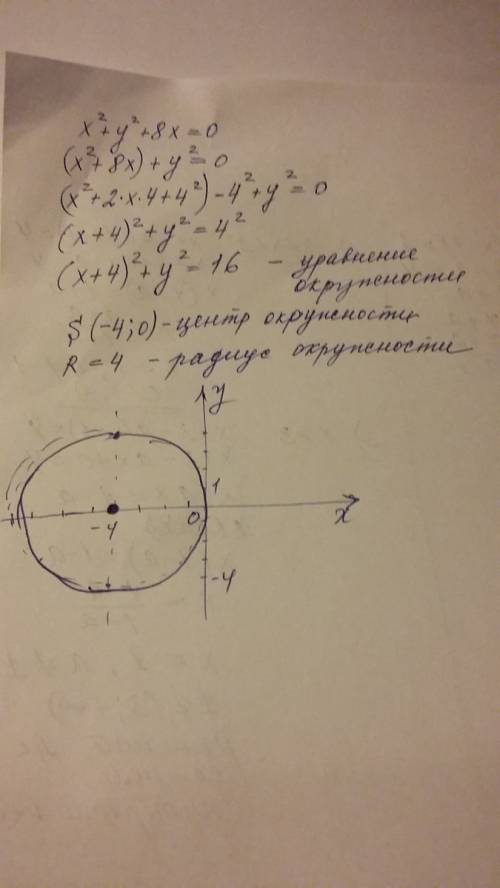 x²+y²+8x=0
(x²+8x)+y²=0
(x²+2·x·4+4²)-4²+y²=0
(x+4)²+y²=4²
(x+4)²+y²=16 - уравнение
окружности
S(-4;0)-центр окружности
R=4 - радиус окружности
y
1
-4 0 x
-4